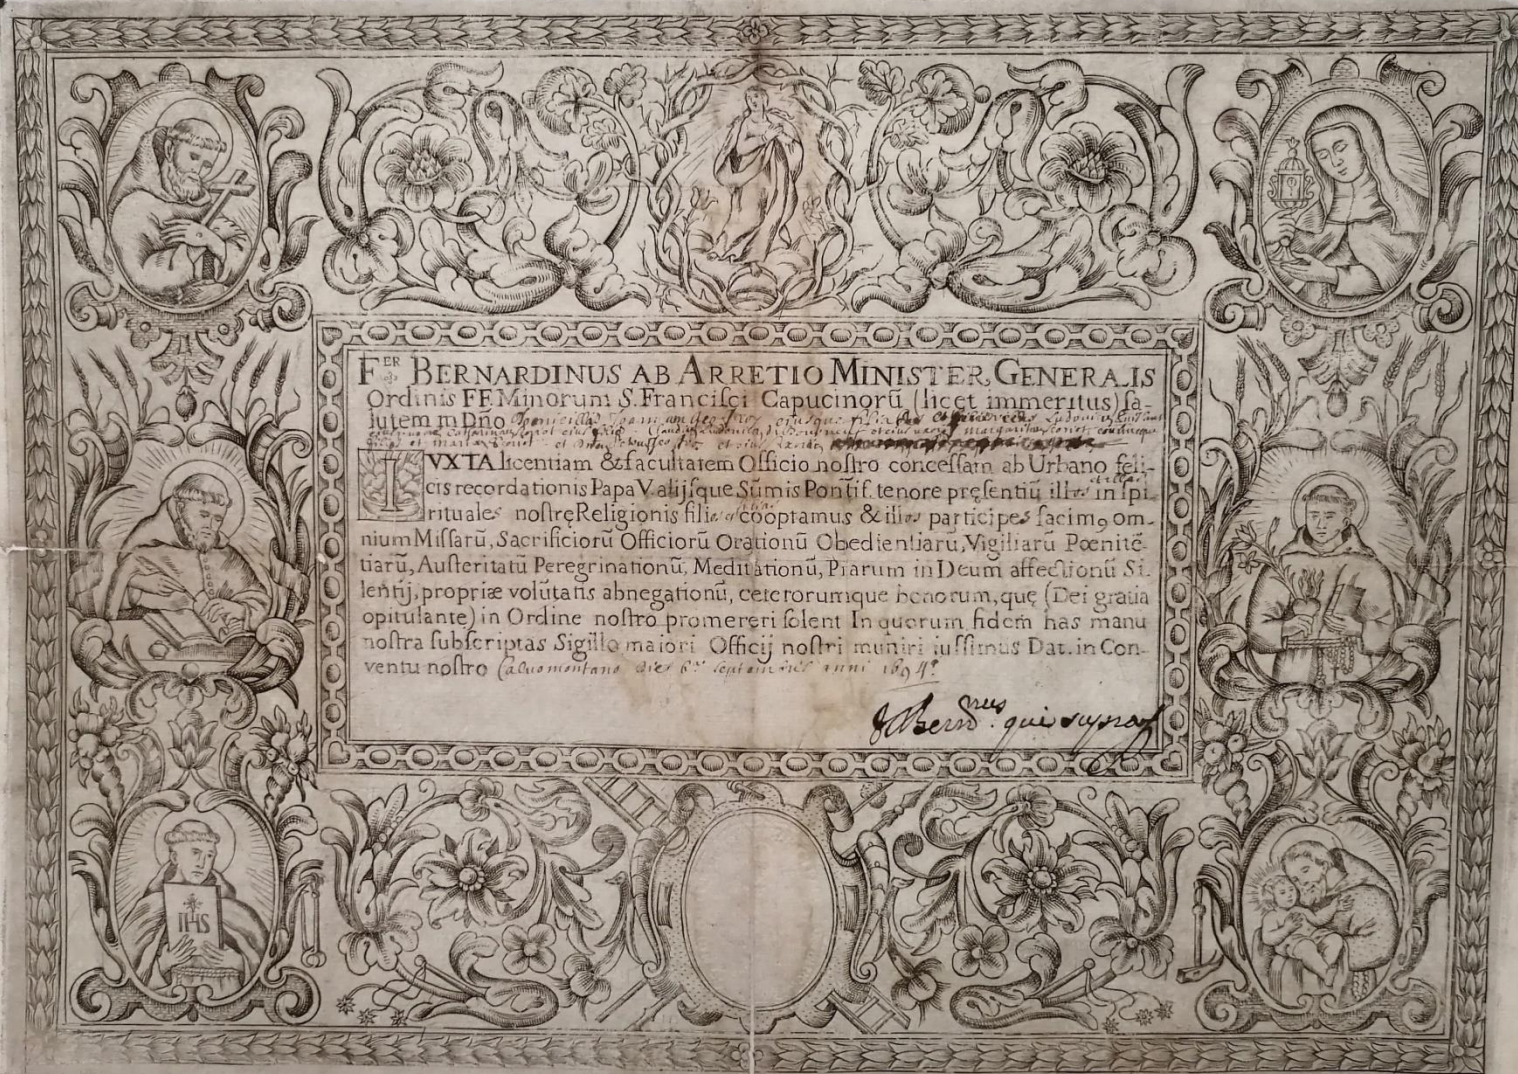 FER BERNARDINUS AB ARRETIO MINISTER GENERALIS
Ordinis FF. Minorum S. Francisci Capucinorū (licet immeritus) sa-
lutem in Dn̄o
IVXTA licentiam & facultatem Officio nostro concessam ab Urbano feli-
cis recordationis Papa V. alijsque Sūmis Pontif. tenore pręsentiū illos in spi-
rituales nostrę Religionis filios cooptamus & illos participes facimꝰ om-
nium Missarū, Sacrificiorū Officiorū Orationū Obedientiarū, Vigiliarū Pœnitē-
tiarū, Austeritatū Peregrinationū, Meditationū, Piarum in Deum affectionū Si-
lentij, propriæ volūtatis abnegationū, ceterorumque bonorum, quę (Dei gratia
opitulante) in Ordine nostro promereri solent In quorum fidem has manu
nostra subscriptas Sigillo maiori Officij nostri muniri iussimus Dat. in Con-
ventu nostro Calvomontano Dies 6ª septembris anni 1694°
qui supra
IHS